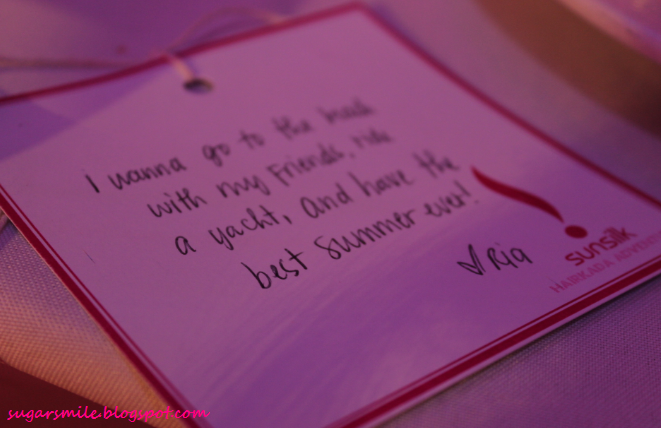 i wanna go to the
with my friends, ride
a yacht, and have the
best summer ever!
Ria
sunsilk
HAIRKADA ADVENT
sugarsmile.blogspot.com